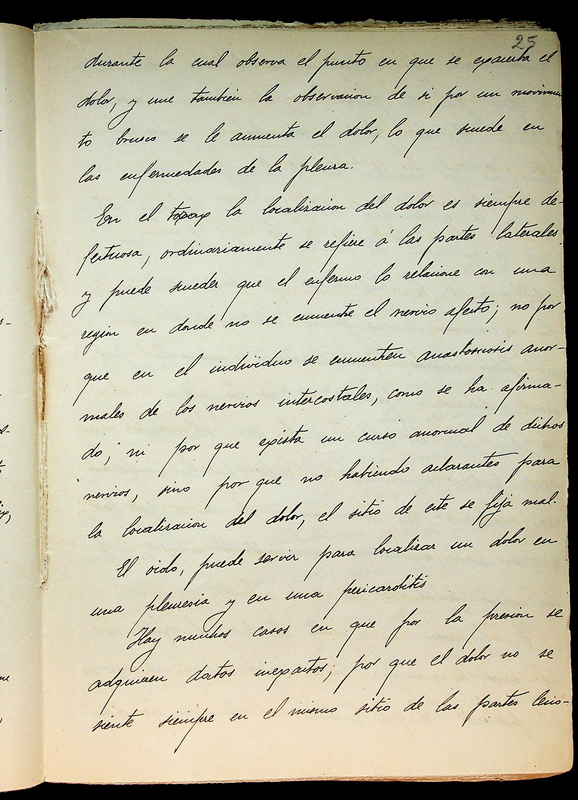 25
durante la cual observa el punto en que se exacerba el
dolor, y une tambien la observacion de si por un movimien
to brusco se le aumenta el dolor, lo que sucede en
las enfermedades de la pleura.
En el toxax la localizacion del dolor es siempre de-
fectuosa, ordinariamente se refiere á las partes laterales
y puede suceder que el enfermo lo relacione con una
region en donde no se encuentre el nervio afecto; no por
que en el individuo se encuentren anastomosis anor-
males de los nervios intercostales, como se ha afirma-
do; ni por que exista un curso anormal de dichos
nervios, sino por que no habiendo aclarantes para
la localizacion del dolor, el sitio de este se fija mal.
El oido, puede servir para localizar un dolor en
una pleuresia y en una pericarditis
Hay muchos casos en que por la presion se
adquieren datos inexactos; por que el dolor no se
siente siempre en el mismo sitio de las partes